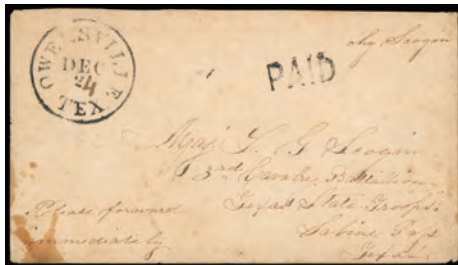 OWENSVILLE
DEC
24
TEX
PAID
Chg Scogin
Maj. L. G Scogin
3rd Cavalry Battallion
Texas State Troops
Sabine Pass
Texas
Please forward
immediately